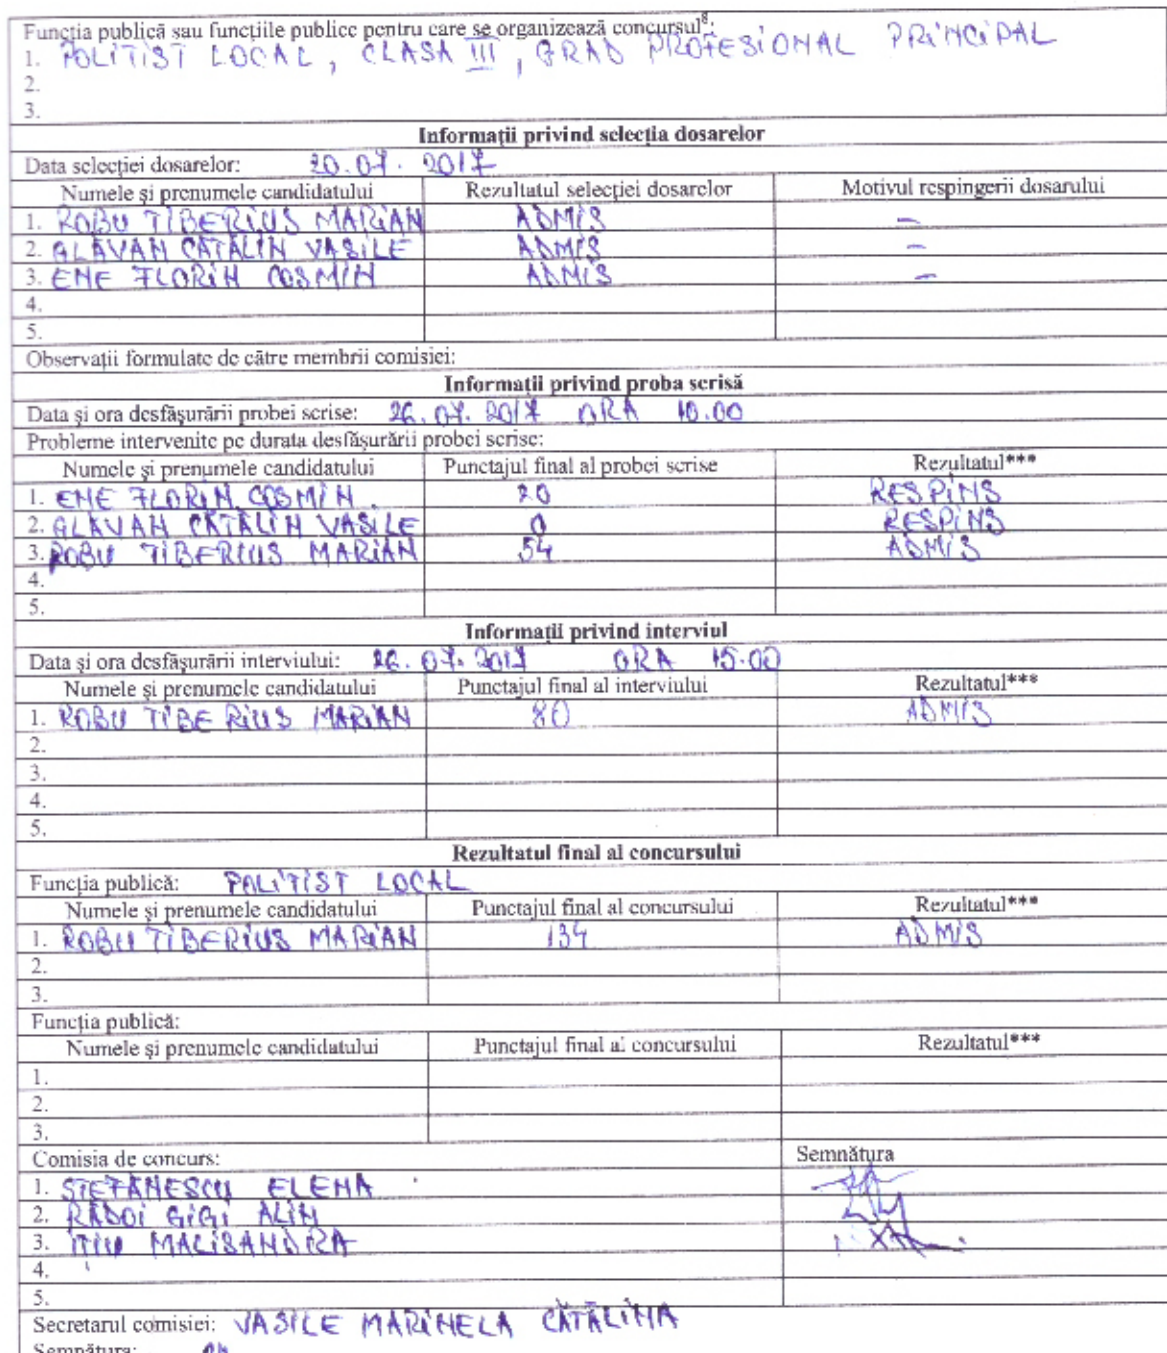 Funcția publică sau funcțiile publice pentru care se organizează concursul⁸:
1. POLITIST LOCAL, CLASA III, GRAD PROFESIONAL PRINCIPAL
2.
3.
Informații privind selecția dosarelor
Data selecției dosarelor: 20.07.2017
Numele și prenumele candidatului Rezultatul selecției dosarelor Motivul respingerii dosarului
1. ROBU TIBERIUS MARIAN ADMIS –
2. GLAVAN CĂTĂLIN VASILE ADMIS –
3. ENE FLORIN COSMIN ADMIS –
4.
5.
Observații formulate de către membrii comisiei:
Informații privind proba scrisă
Data și ora desfășurării probei scrise: 26.07.2017 ORA 10.00
Probleme intervenite pe durata desfășurării probei scrise:
Numele și prenumele candidatului Punctajul final al probei scrise Rezultatul***
1. ENE FLORIN COSMIN 20 RESPINS
2. GLAVAN CĂTĂLIN VASILE 0 RESPINS
3. ROBU TIBERIUS MARIAN 54 ADMIS
4.
5.
Informații privind interviul
Data și ora desfășurării interviului: 26.07.2017 ORA 15.00
Numele și prenumele candidatului Punctajul final al interviului Rezultatul***
1. ROBU TIBERIUS MARIAN 80 ADMIS
2.
3.
4.
5.
Rezultatul final al concursului
Funcția publică: POLITIST LOCAL
Numele și prenumele candidatului Punctajul final al concursului Rezultatul***
1. ROBU TIBERIUS MARIAN 134 ADMIS
2.
3.
Funcția publică:
Numele și prenumele candidatului Punctajul final al concursului Rezultatul***
1.
2.
3.
Comisia de concurs: Semnătura
1. ȘTEFĂNESCU ELENA
2. RĂDOI GIGI ALIN
3. MALISANDRA
4.
5.
Secretarul comisiei: VASILE MARINELA CĂTĂLINA
Semnătura: